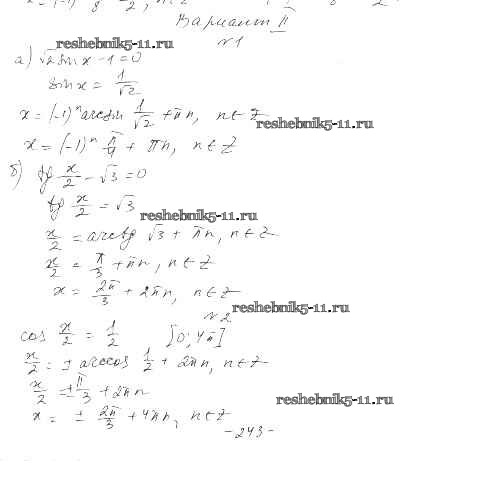 Вариант II
reshebnik5-11.ru
№1
а) √2 sin x - 1 = 0
sin x = 1/√2
x = (-1)ⁿ arcsin 1/√2 + πn, n ∈ Z
reshebnik5-11.ru
x = (-1)ⁿ π/4 + πn, n ∈ Z
б) tg x/2 - √3 = 0
tg x/2 = √3
reshebnik5-11.ru
x/2 = arctg √3 + πn, n ∈ Z
x/2 = π/3 + πn, n ∈ Z
x = 2π/3 + 2πn, n ∈ Z
reshebnik5-11.ru
№2
cos x/2 = 1/2 [0; 4π]
x/2 = ± arccos 1/2 + 2πn, n ∈ Z
x/2 = ± π/3 + 2πn
reshebnik5-11.ru
x = ± 2π/3 + 4πn, n ∈ Z
- 243 -